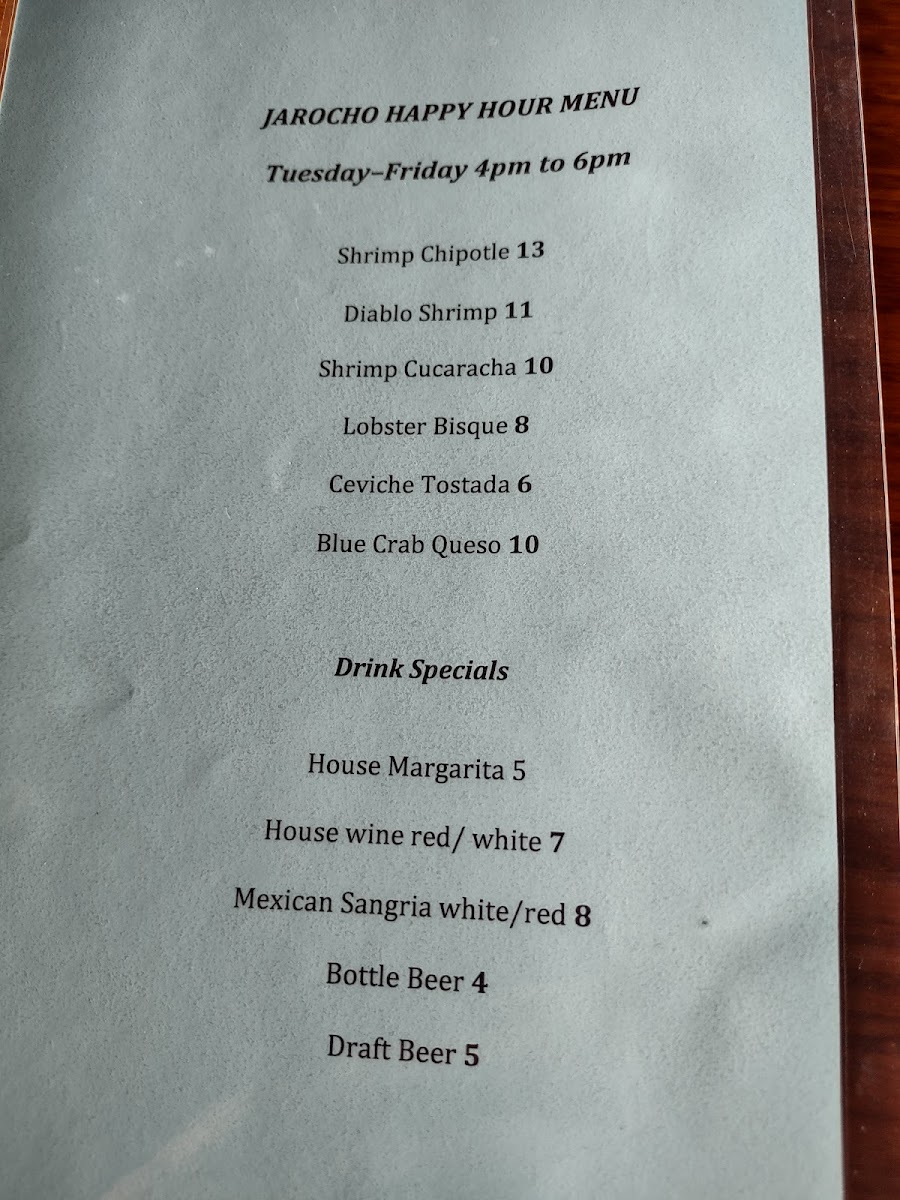 JAROCHO HAPPY HOUR MENU
Tuesday–Friday 4pm to 6pm
Shrimp Chipotle 13
Diablo Shrimp 11
Shrimp Cucaracha 10
Lobster Bisque 8
Ceviche Tostada 6
Blue Crab Queso 10
Drink Specials
House Margarita 5
House wine red/ white 7
Mexican Sangria white/red 8
Bottle Beer 4
Draft Beer 5